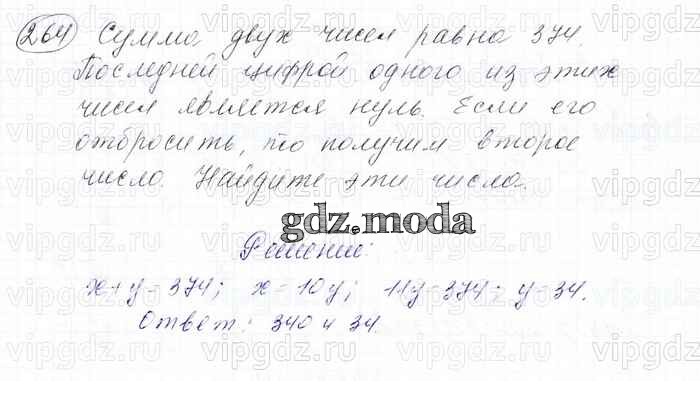 264 Сумма двух чисел равна 374.
Последней цифрой одного из этих
чисел является нуль. Если его
отбросить, то получим второе
число. Найдите эти числа.
gdz.moda
Решение:
x + y = 374; x = 10y; 11y = 374; y = 34.
Ответ: 340 и 34.